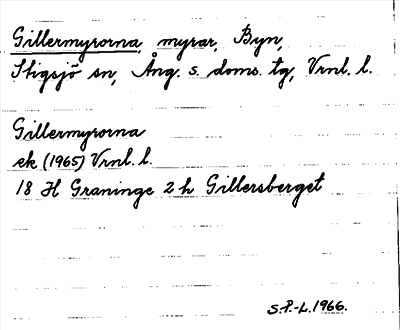 Gillermyrorna, myrar, Byn,
Stigsjö sn, Ång. s. doms. tg, Vrnl. l.
Gillermyrorna
ek (1965) Vrnl. l.
18 H Graninge 2 h Gillersberget
S.P.-L. 1966.